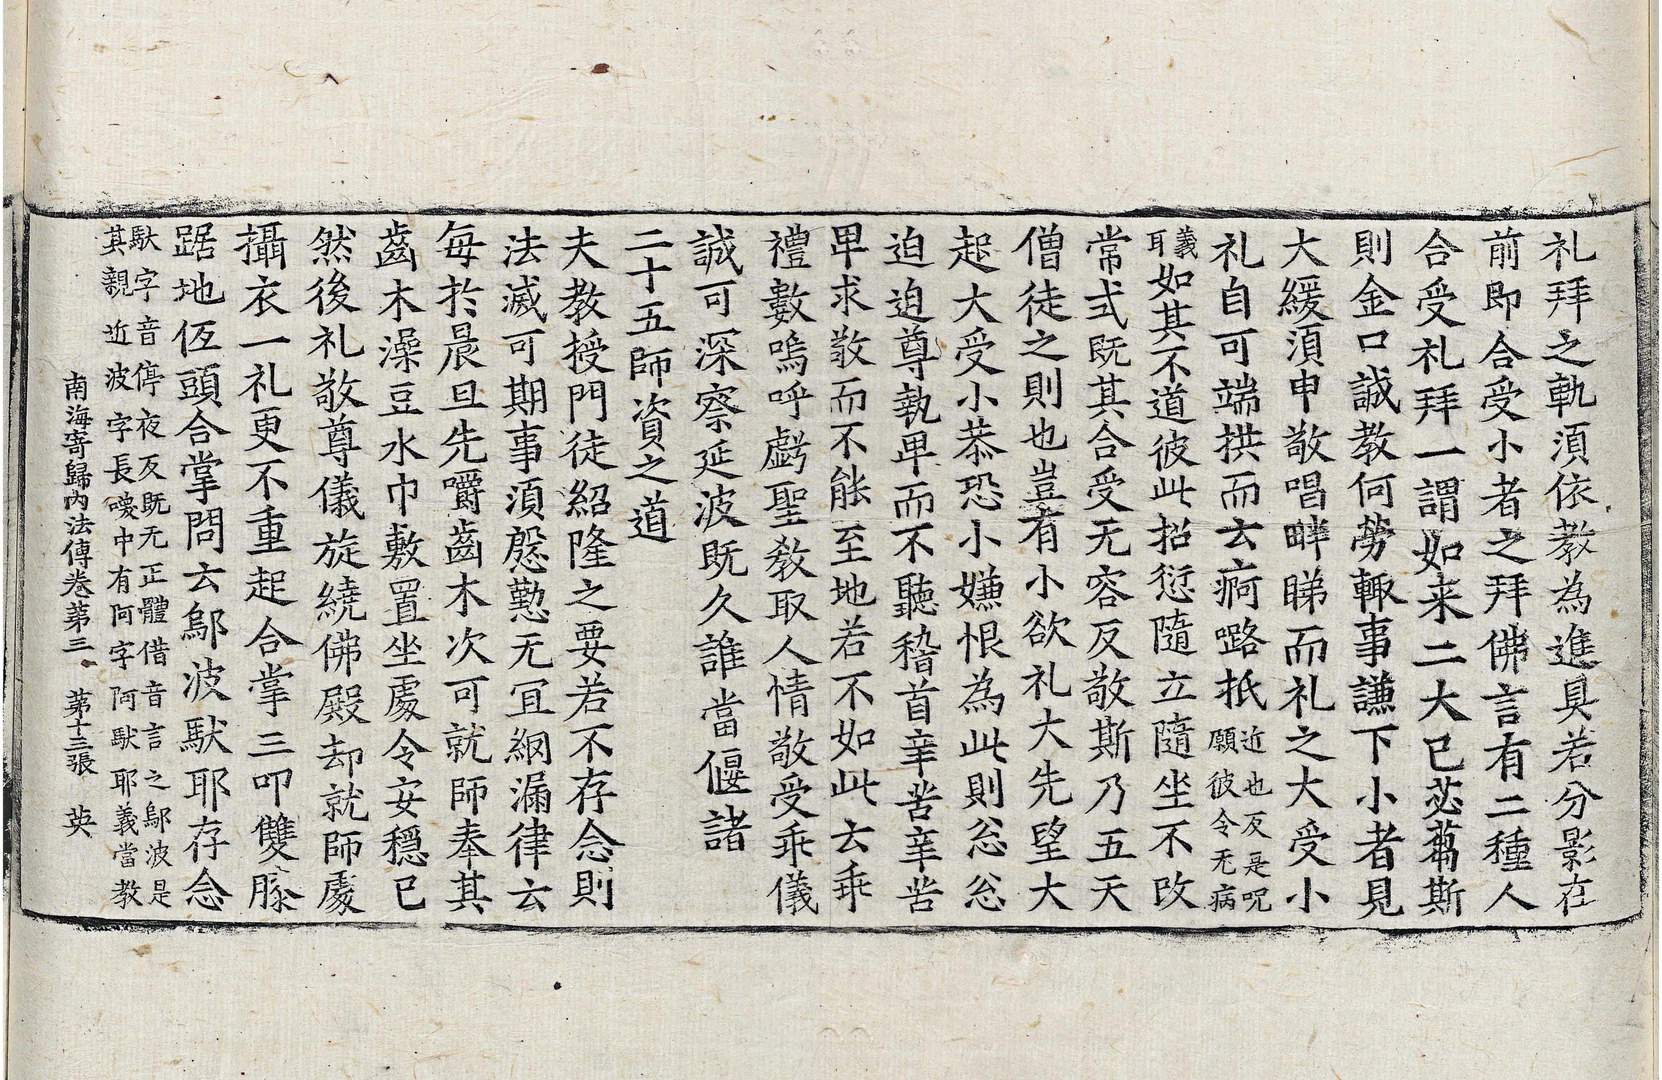 礼拜之軌須依教為進具若分影在
前即合受小者之拜佛言有二種人
合受礼拜一謂如来二大已苾蒭斯
則金口誠教何勞輙事謙下小者見
大緩須申敬唱畔睇而礼之大受小
礼自可端拱而云痾㗨袛近也反是呪願彼令无病
義耳如其不道彼此招愆隨立隨坐不改
常式既其合受无容反敬斯乃五天
僧徒之則也豈有小欲礼大先望大
起大受小恭恐小嫌恨為此則忩忩
迫迫尊執卑而不聽稽首辛苦辛苦
卑求敬而不能至地若不如此云乖
禮數嗚呼虧聖教取人情敬受乖儀
誠可深察延波既久誰當偃諸
二十五師資之道
夫教授門徒紹隆之要若不存念則
法滅可期事須慇懃无冝網漏律云
每於晨旦先嚼齒木次可就師奉其
齒木澡豆水巾敷置坐處令安穩已
然後礼敬尊儀旋繞佛殿却就師處
攝衣一礼更不重起合掌三叩雙膝
踞地伍頭合掌問云鄔波馱耶存念
馱字音停夜反既无正體借音言之鄔波是
其親近波字長喚中有阿字阿馱耶義當教
南海寄歸內法傳卷苐三　苐十三張　英